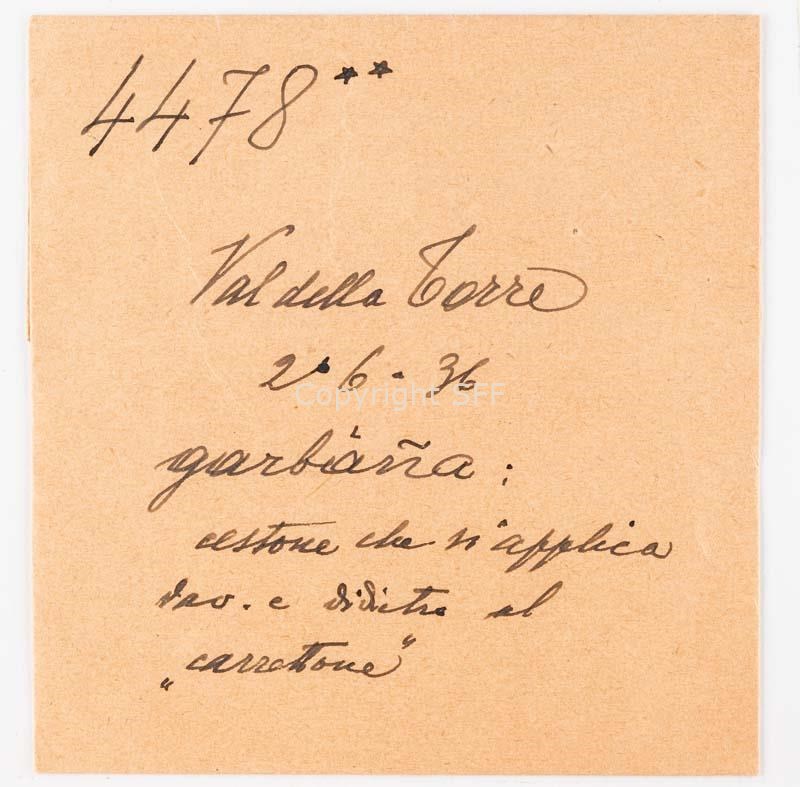 4478**
Val della Torre
2.6.36
garbàña:
cestone che si applica
dav. e didietro al
„carrettone”
Copyright SFF